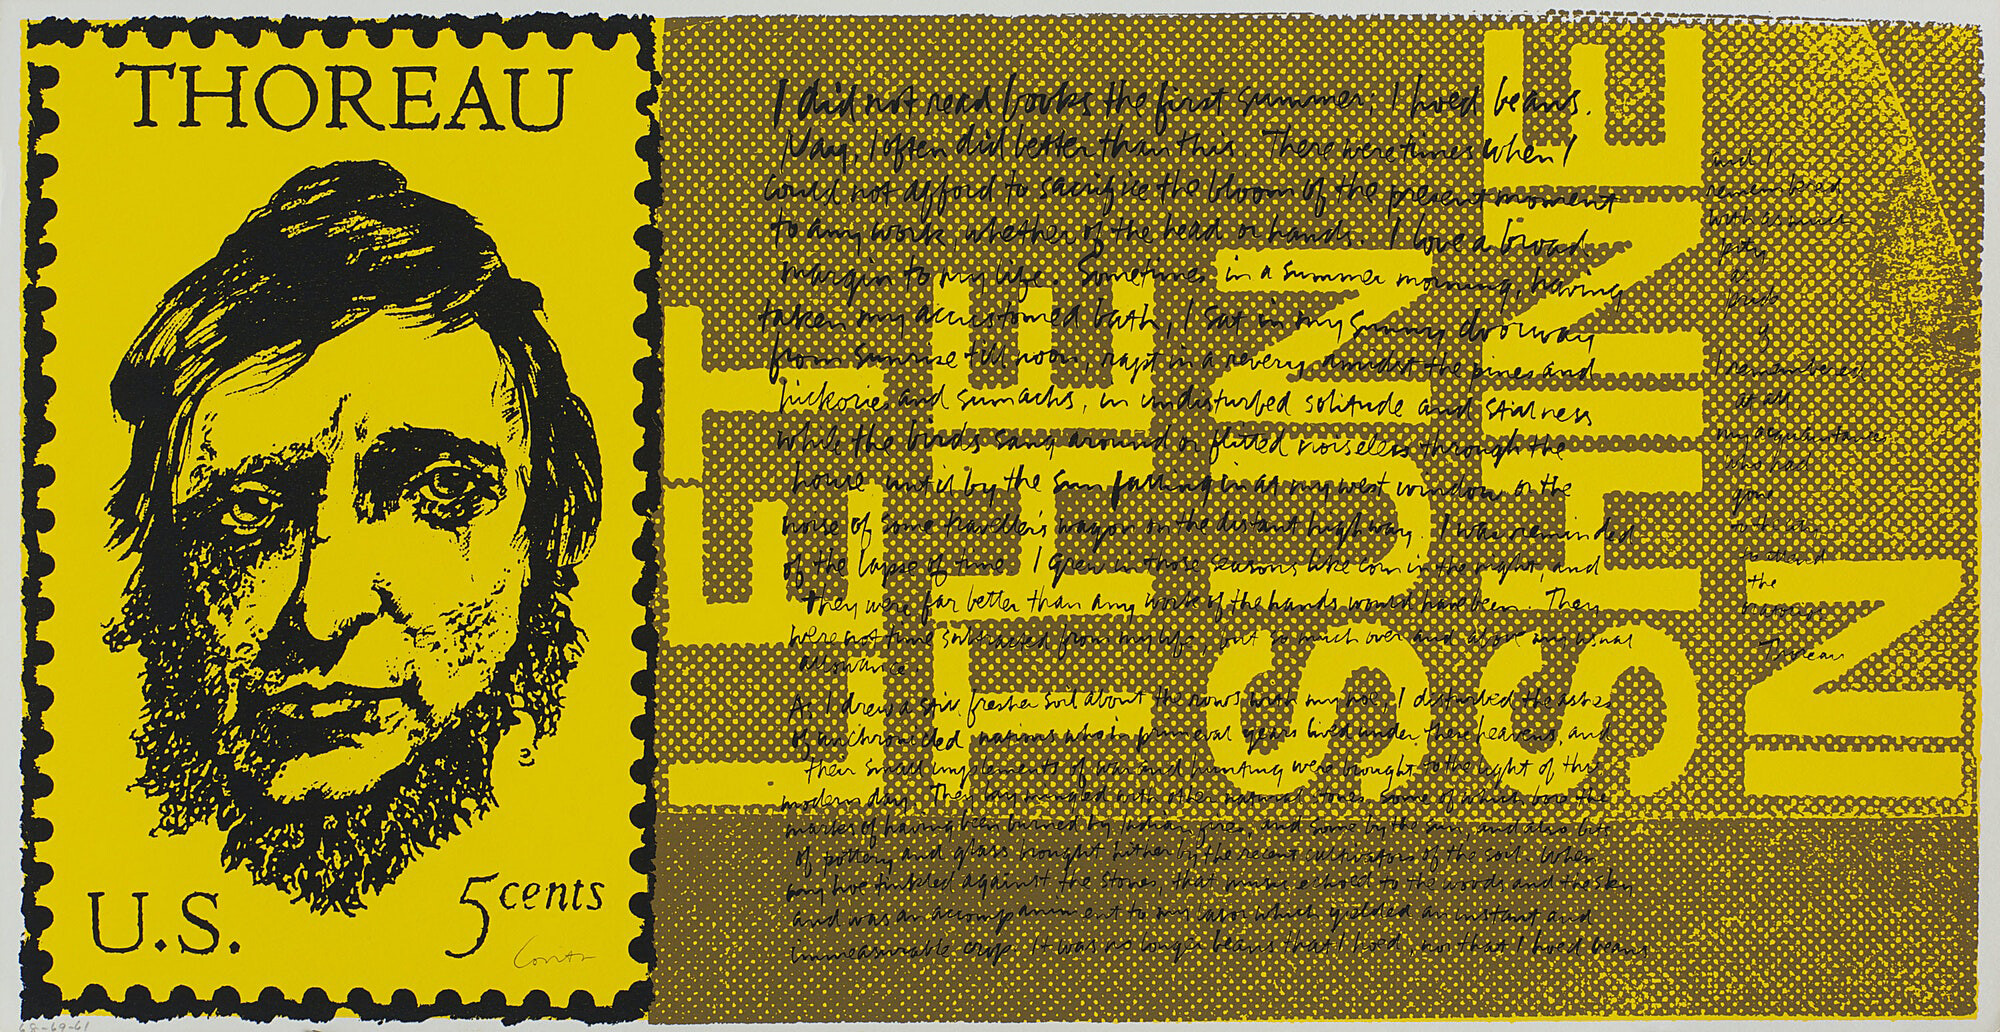 THOREAU
U.S. 5 cents
Corita
68-69-61
LET
THE
SUN
SHINE
IN
I did not read books the first summer; I hoed beans.
Nay, I often did better than this. There were times when I
could not afford to sacrifice the bloom of the present moment
to any work, whether of the head or hands. I love a broad
margin to my life. Sometimes, in a summer morning, having
taken my accustomed bath, I sat in my sunny doorway
from sunrise till noon, rapt in a revery, amidst the pines and
hickories and sumachs, in undisturbed solitude and stillness
while the birds sang around or flitted noiseless through the
house until by the sun falling in at my west window or the
noise of some traveller's wagon on the distant highway, I was reminded
of the lapse of time. I grew in those seasons like corn in the night, and
they were far better than any work of the hands would have been. They
were not time subtracted from my life, but so much over and above my usual
allowance
As I drew a still fresher soil about the rows with my hoe, I disturbed the ashes
of unchronicled nations who in primeval years lived under these heavens, and
their small implements of war and hunting were brought to the light of this
modern day. They lay mingled with other natural stones some of which bore the
marks of having been burned by Indian fires, and some by the sun, and also bits
of pottery and glass brought hither by the recent cultivators of the soil. When
my hoe tinkled against the stones, that music echoed to the woods and the sky
and was an accompaniment to my labor which yielded an instant and
immeasurable crop. It was no longer beans that I hoed, nor that I hoed beans
and I
remembered
with as much
pity
as
pride
if
I remembered
at all
my acquaintances
who had
gone
to the city
to attend
the
oratorios
Thoreau